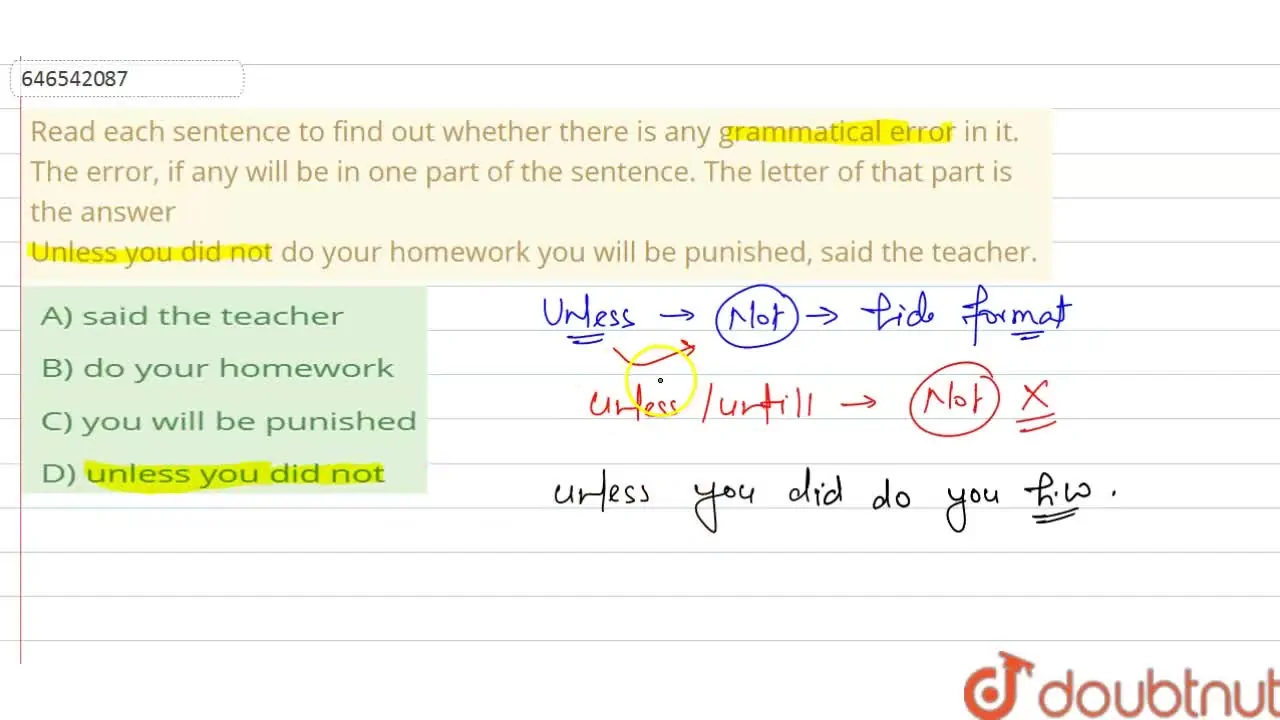 646542087
Read each sentence to find out whether there is any grammatical error in it.
The error, if any will be in one part of the sentence. The letter of that part is
the answer
Unless you did not do your homework you will be punished, said the teacher.
A) said the teacher
B) do your homework
C) you will be punished
D) unless you did not
Unless → Not → hide format
unless / untill → Not X
unless you did do you h.w.
doubtnut